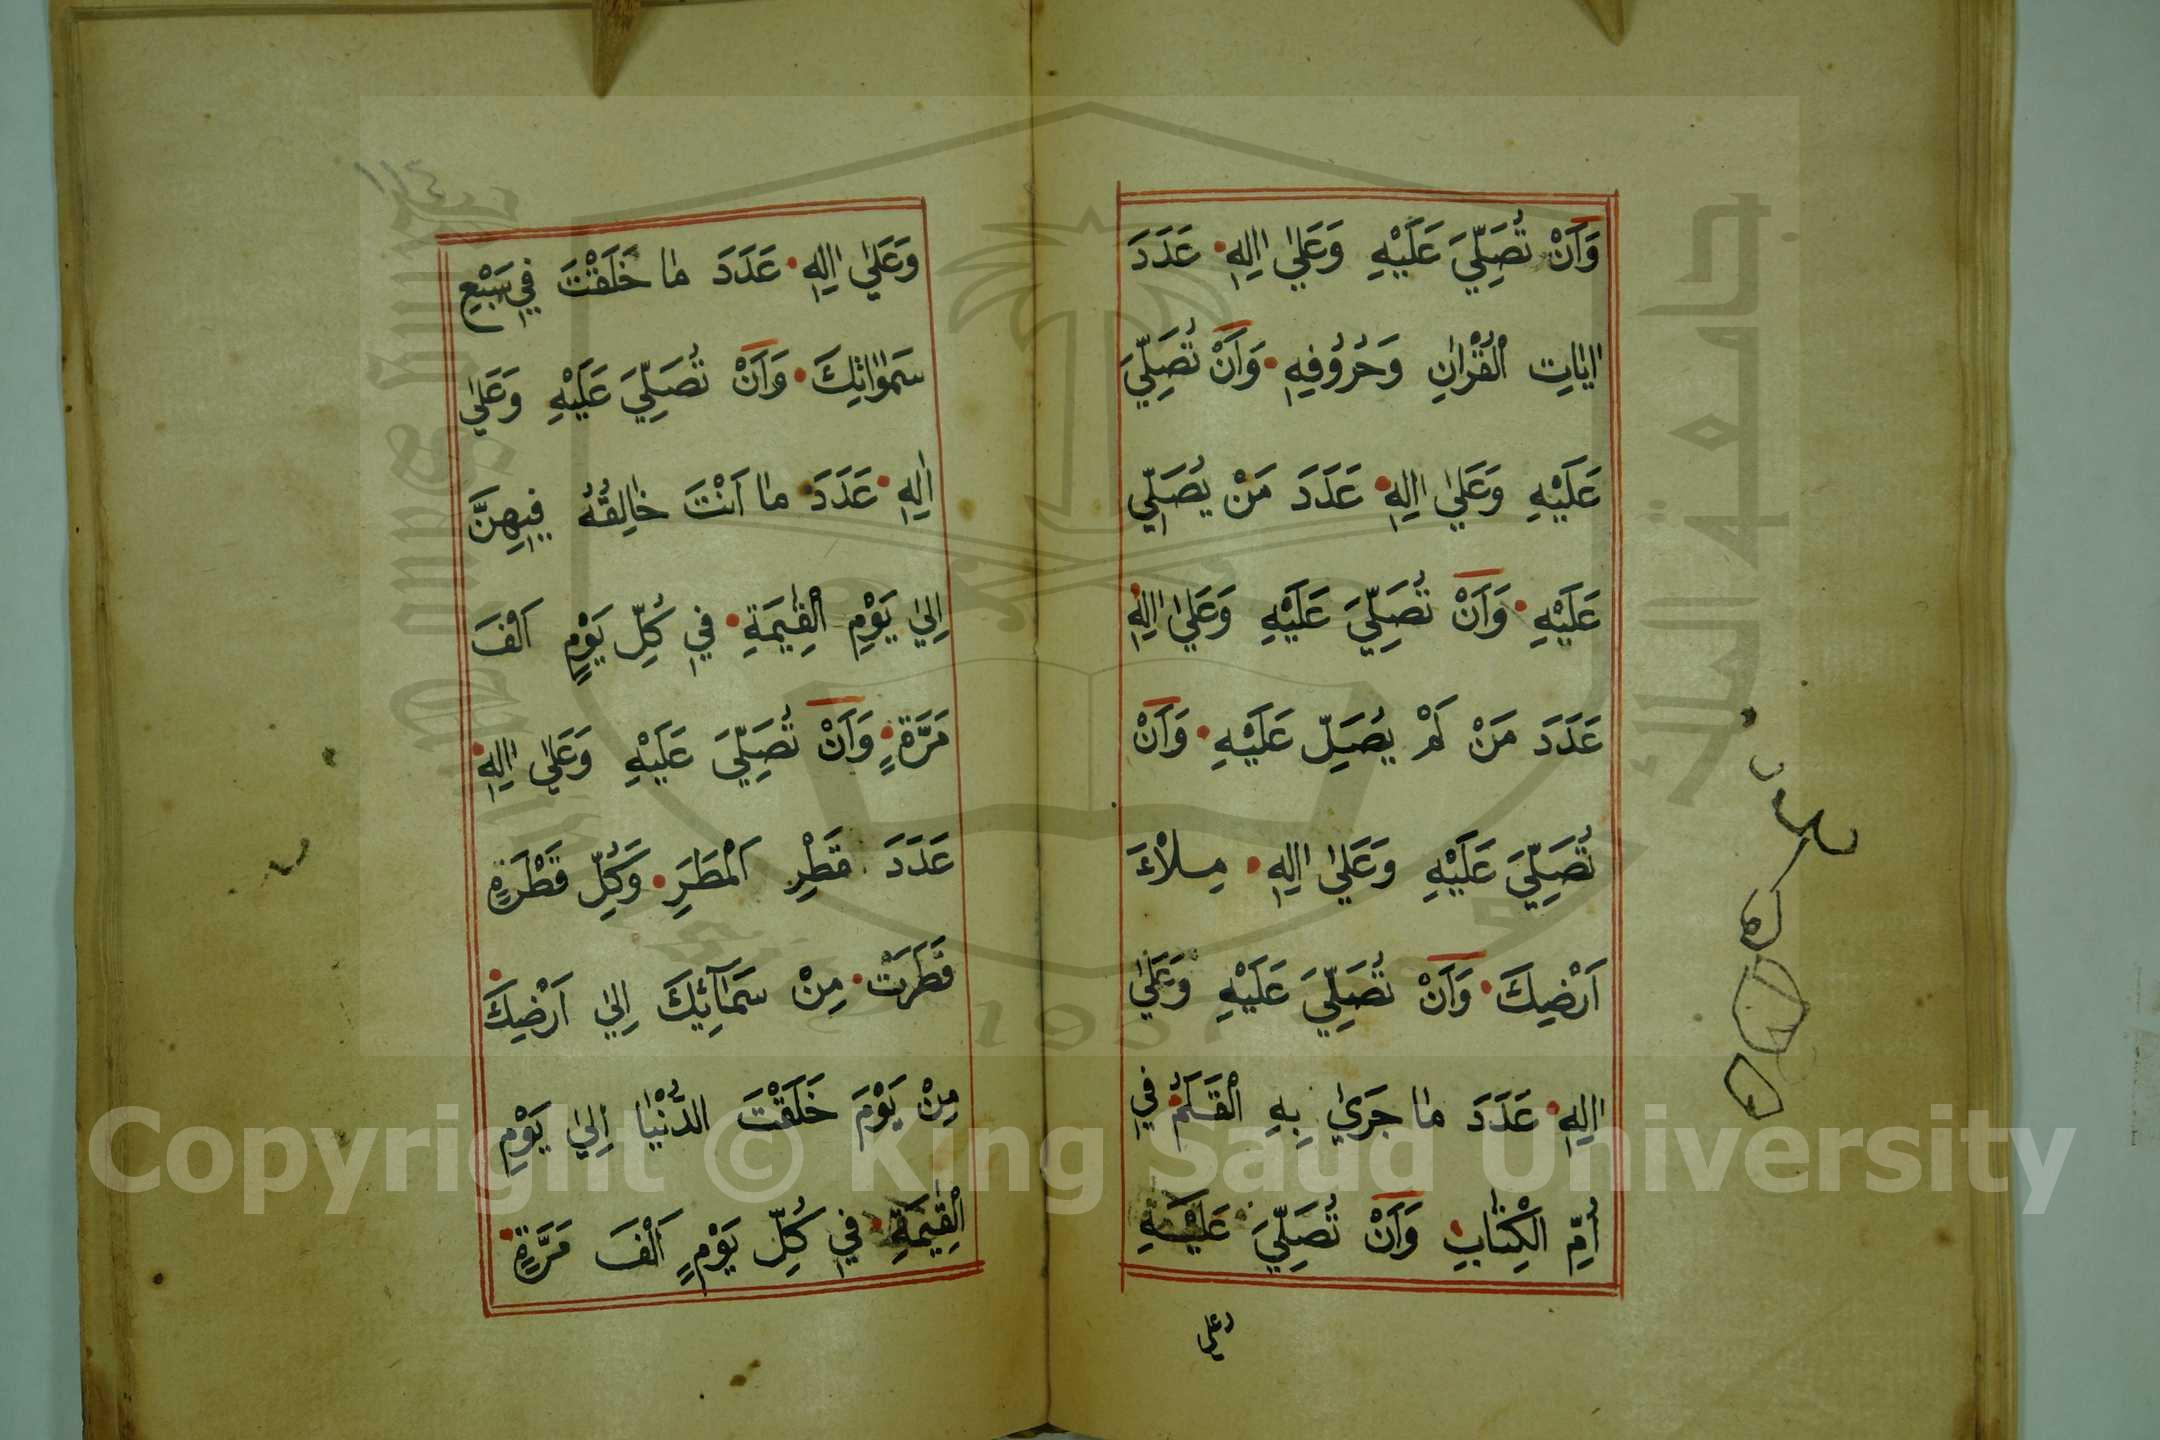 وَاَنْ تُصَلِّيَ عَلَيْهِ وَعَلٰي اٰلِهٖ عَدَدَ
اٰيَاتِ الْقُرْاٰنِ وَحُرُوُفِهٖ وَاَنْ تُصَلِّيَ
عَلَيْهِ وَعَلٰي اٰلِهٖ عَدَدَ مَنْ يُصَلِّي
عَلَيْهِ وَاَنْ تُصَلِّيَ عَلَيْهِ وَعَلٰي اٰلِهٖ
عَدَدَ مَنْ لَمْ يُصَلِّ عَلَيْهِ وَاَنْ
تُصَلِّيَ عَلَيْهِ وَعَلٰي اٰلِهٖ مِلْاءَ
اَرْضِكَ وَاَنْ تُصَلِّيَ عَلَيْهِ وَعَلٰي
اٰلِهٖ عَدَدَ مَا جَرٰي بِهِ الْقَلَمُ فِي
اُمِّ الْكِتَابِ وَاَنْ تُصَلِّيَ عَلَيْهِ
وعلي
وَعَلٰي اٰلِهٖ عَدَدَ مَا خَلَقْتَ فِي سَبْعِ
سَمٰوَاتِكَ وَاَنْ تُصَلِّيَ عَلَيْهِ وَعَلٰي
اٰلِهٖ عَدَدَ مَا اَنْتَ خَالِقُهُ فِيهِنَّ
اِلٰي يَوْمِ الْقِيٰمَةِ فِي كُلِّ يَوْمٍ اَلْفَ
مَرَّةٍ وَاَنْ تُصَلِّيَ عَلَيْهِ وَعَلٰي اٰلِهٖ
عَدَدَ قَطْرِ الْمَطَرِ وَكُلِّ قَطْرَةٍ
قَطَرَتْ مِنْ سَمَآئِكَ اِلٰي اَرْضِكَ
مِنْ يَوْمَ خَلَقْتَ الدُّنْيَا اِلٰي يَوْمِ
الْقِيٰمَةِ فِي كُلِّ يَوْمٍ اَلْفَ مَرَّةٍ
Copyright © King Saud University
جامعة الملك سعود
King Saud University
1957